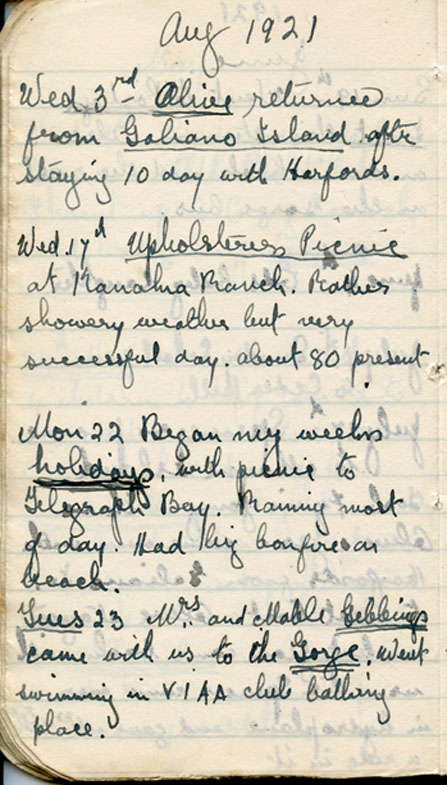 Aug 1921
Wed 3rd Alice returned
from Galiano Island after
staying 10 day with Harfords.
Wed. 17th Upholsterers Picnic
at Ranch. Rather
showery weather but very
successful day. about 80 present
Mon 22 Began my weeks
holidays, with picnic to
Telegraph Bay. Raining most
of day. Had big bonfire on
beach.
Tues 23 Mrs and Mable Gebbings
came with us to the Gorge. Went
swimming in VIAA club bathing
place.